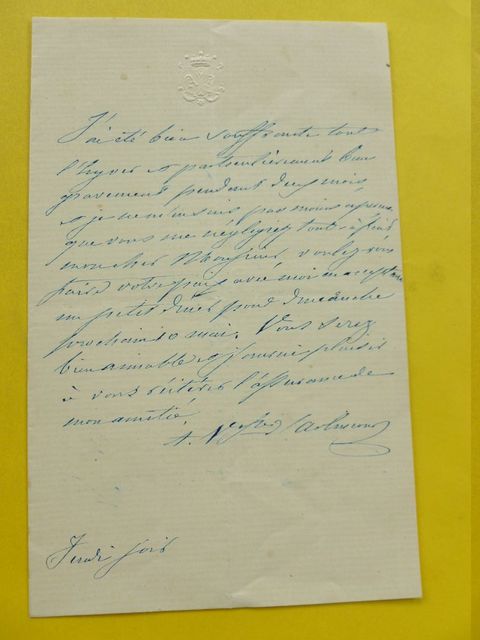 J'ai été bien souffrante tout
l'hyver et particulièrement bien
gravement pendant deux mois
et je n'en suis pas moins
que vous me négligiez tout à fait
mon cher Monsieur, voulez vous
faire votre paix avec moi en acceptant
un petit diner pour dimanche
prochain 10 mai. Vous serez
bien aimable et j'aurai plaisir
à vous réitérer l'assurance de
mon amitié,
Jeudi soir